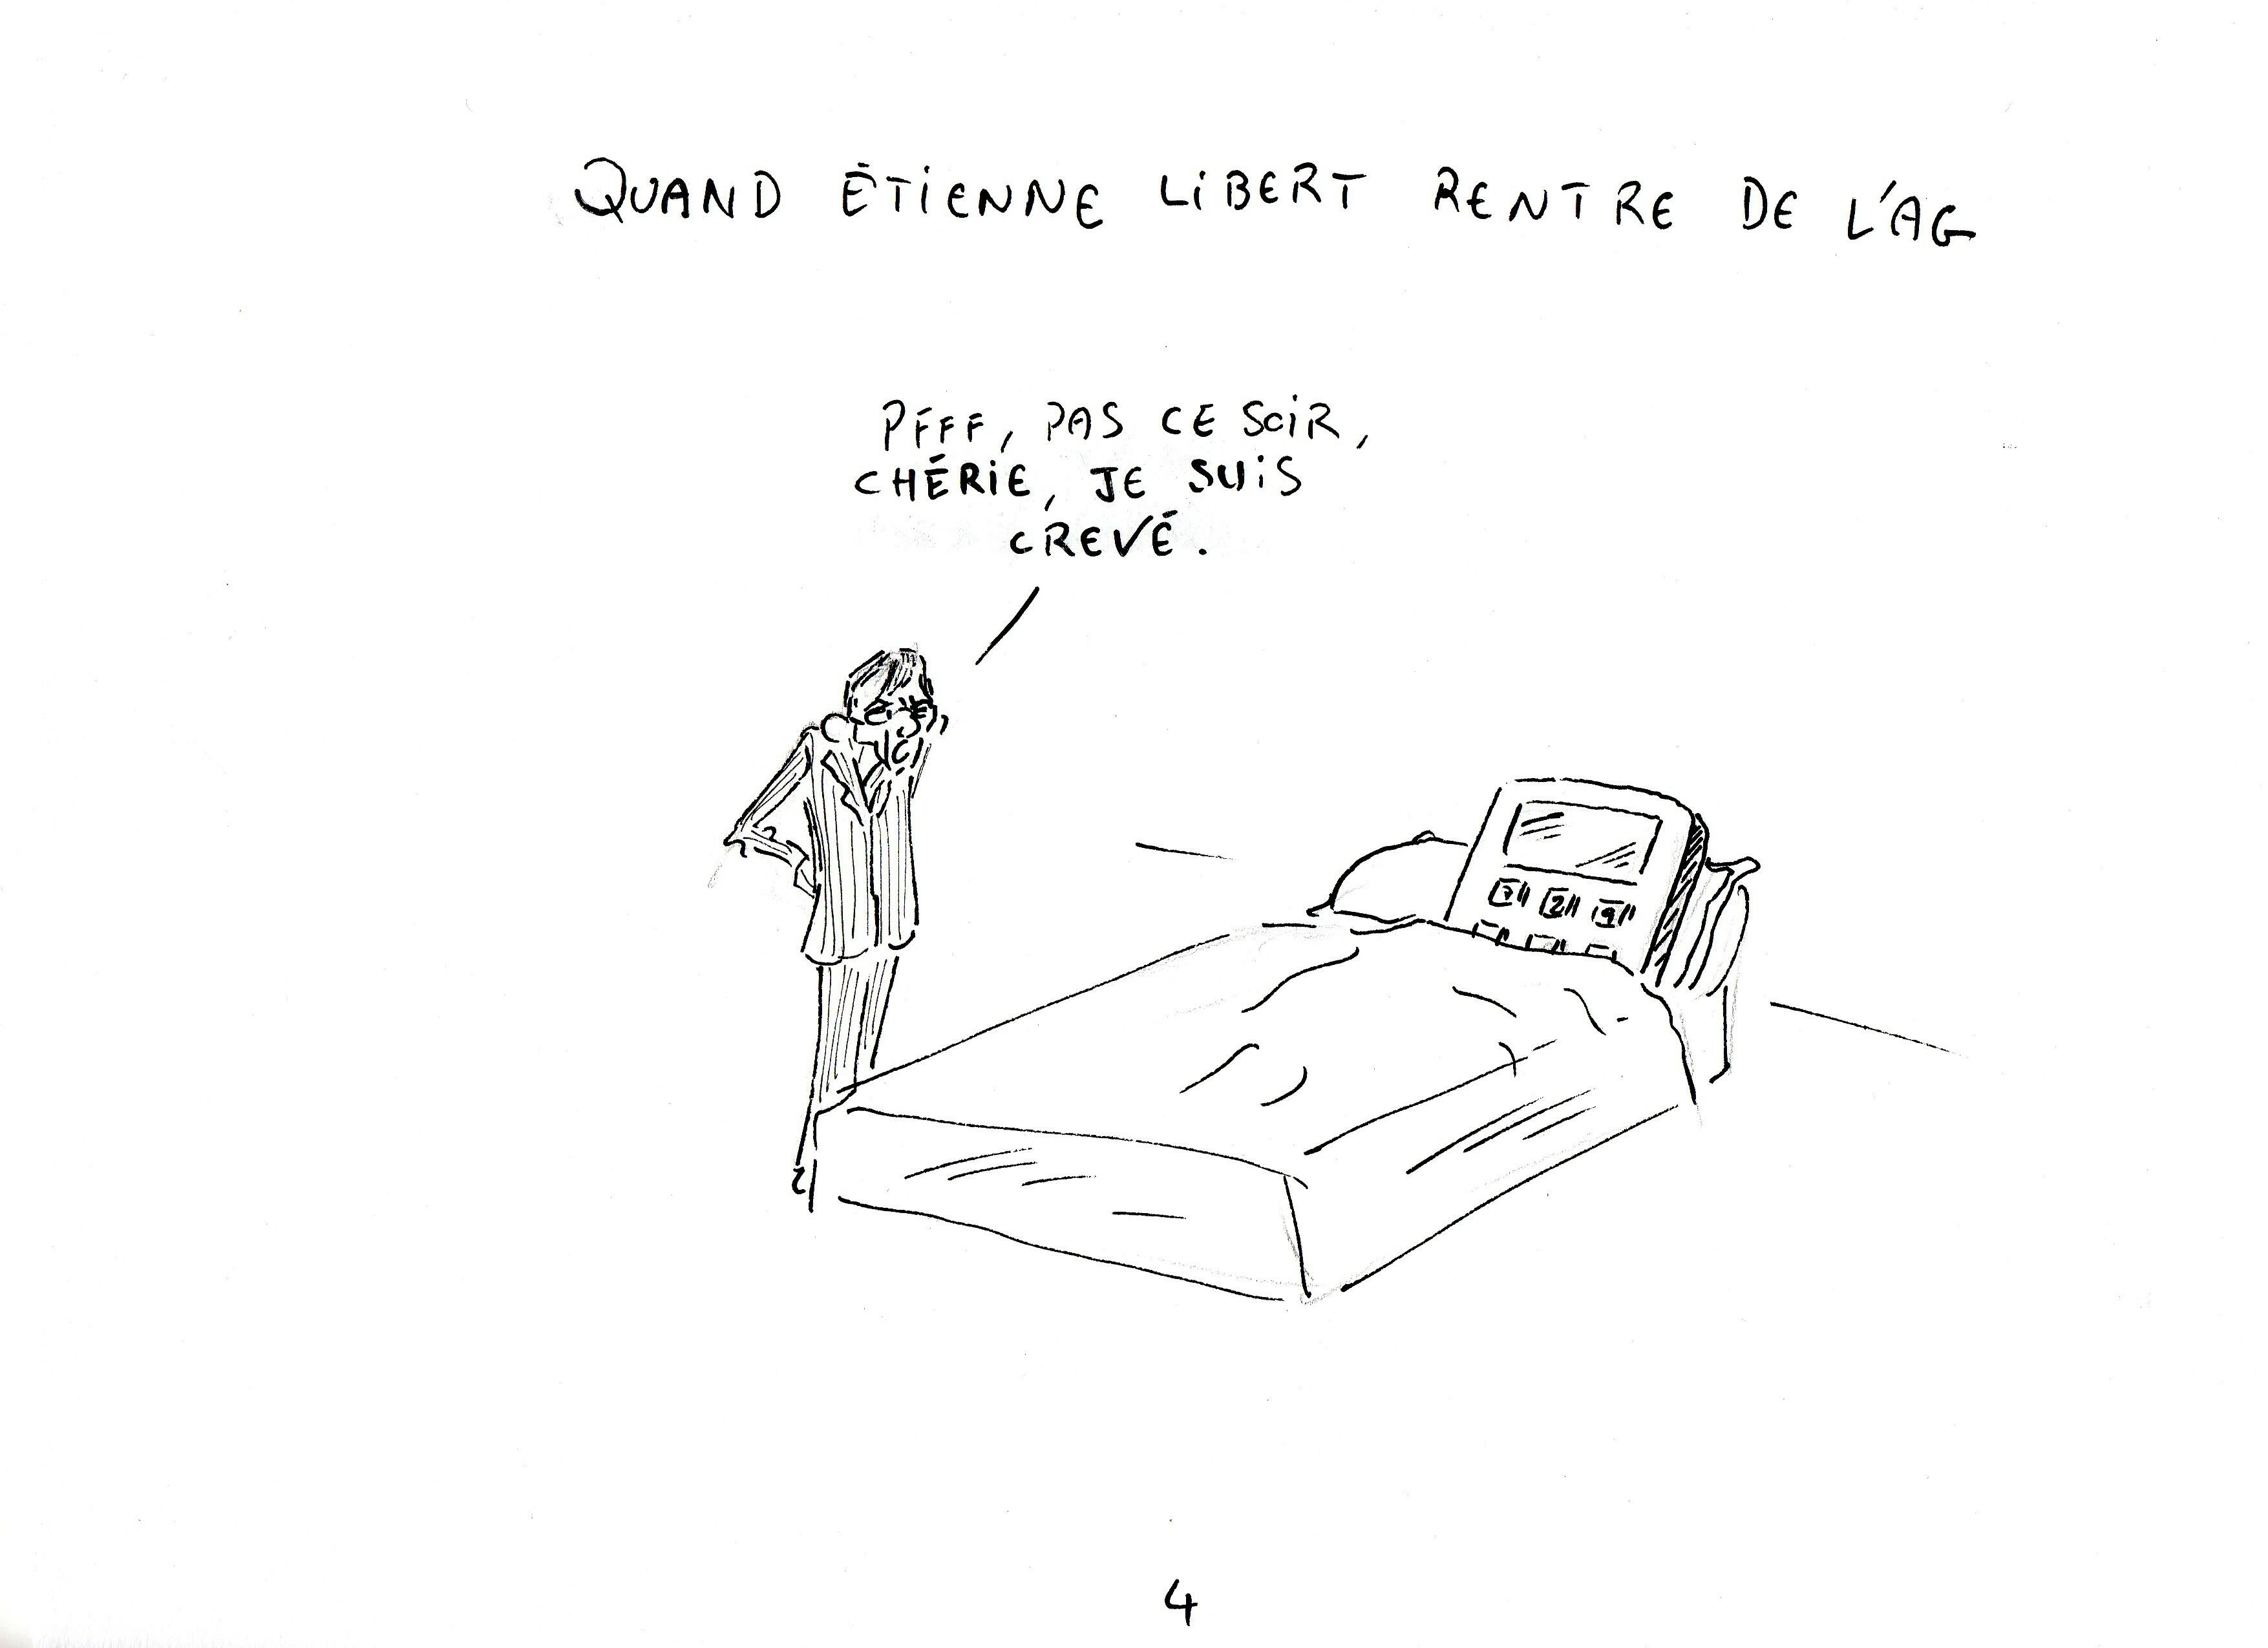 QUAND ÉTIENNE LIBERT RENTRE DE L'AG
PFFF, PAS CE SOIR,
CHÉRIE, JE SUIS
CREVÉ.
1 2 3
4